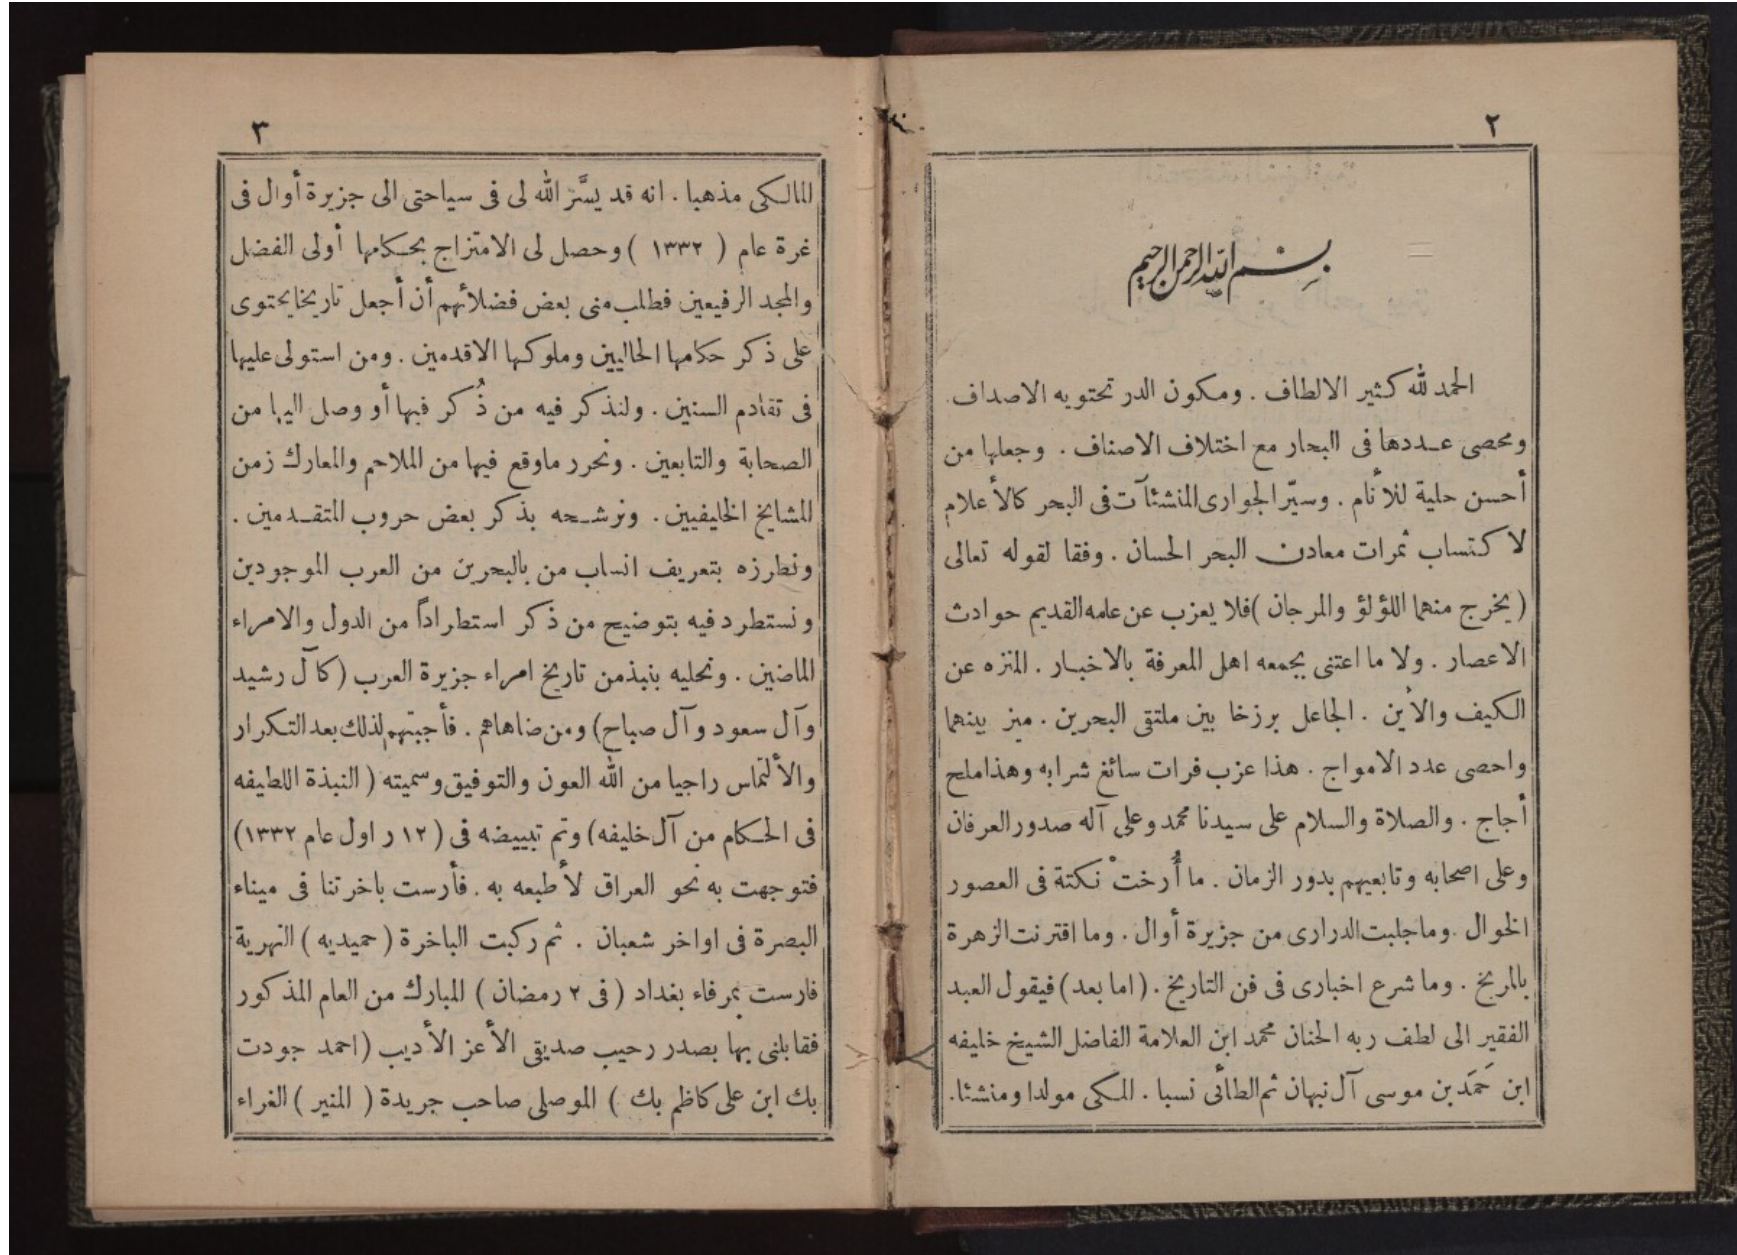 ٢
بسم الله الرحمن الرحيم
الحمد لله كثير الالطاف . ومكون الدر تحتويه الاصداف .
ومحصى عددها فى البحار مع اختلاف الاصناف . وجعلها من
أحسن حلية للأنام . وسيّر الجوارى المنشئآت فى البحر كالأعلام
لاكتساب ثمرات معادن البحر الحسان . وفقا لقوله تعالى
( يخرج منهما اللؤلؤ والمرجان ) فلا يعزب عن علمه القديم حوادث
الاعصار . ولا ما اعتنى بجمعه اهل المعرفة بالاخبار . المنزه عن
الكيف والأين . الجاعل برزخا بين ملتقى البحرين . ميز بينهما
واحصى عدد الامواج . هذا عزب فرات سائغ شرابه وهذا ملح
أجاج . والصلاة والسلام على سيدنا محمد وعلى آله صدور العرفان
وعلى اصحابه وتابعيهم بدور الزمان . ما أُرختْ نكتة فى العصور
الخوال . وما جلبت الدرارى من جزيرة أوال . وما اقترنت الزهرة
بالمريخ . وما شرع اخبارى فى فن التاريخ . ( اما بعد ) فيقول العبد
الفقير الى لطف ربه الحنان محمد ابن العلامة الفاضل الشيخ خليفه
ابن حَمَد بن موسى آل نبهان ثم الطائى نسبا . المكى مولدا ومنشئا .
٣
المالكى مذهبا . انه قد يسَّر الله لى فى سياحتى الى جزيرة أوال فى
غرة عام ( ١٣٣٢ ) وحصل لى الامتزاج بحكامها أولى الفضل
والمجد الرفيعين فطلب منى بعض فضلائهم أن أجعل تاريخا يحتوى
على ذكر حكامها الحاليين وملوكها الاقدمين . ومن استولى عليها
فى تقادم السنين . ولنذكر فيه من ذُكر فيها أو وصل اليها من
الصحابة والتابعين . ونحرر ماوقع فيها من الملاحم والمعارك زمن
المشايخ الخليفيين . ونرشحه بذكر بعض حروب المتقدمين .
ونطرزه بتعريف انساب من بالبحرين من العرب الموجودين
ونستطرد فيه بتوضيح من ذكر استطراداً من الدول والامراء
الماضين . ونحليه بنبذ من تاريخ امراء جزيرة العرب ( كآل رشيد
وآل سعود وآل صباح ) ومن ضاهاهم . فأجبتهم لذلك بعد التكرار
والألتماس راجيا من الله العون والتوفيق وسميته ( النبذة اللطيفه
فى الحكام من آل خليفه ) وتم تبييضه فى ( ١٢ ر اول عام ١٣٣٢ )
فتوجهت به نحو العراق لأطبعه به . فأرست باخرتنا فى ميناء
البصرة فى اواخر شعبان . ثم ركبت الباخرة ( حميديه ) النهرية
فارست بمرفاء بغداد ( فى ٢ رمضان ) المبارك من العام المذكور
فقابلنى بها بصدر رحيب صديقى الأعز الأديب ( احمد جودت
بك ابن على كاظم بك ) الموصلى صاحب جريدة ( المنير ) الغراء